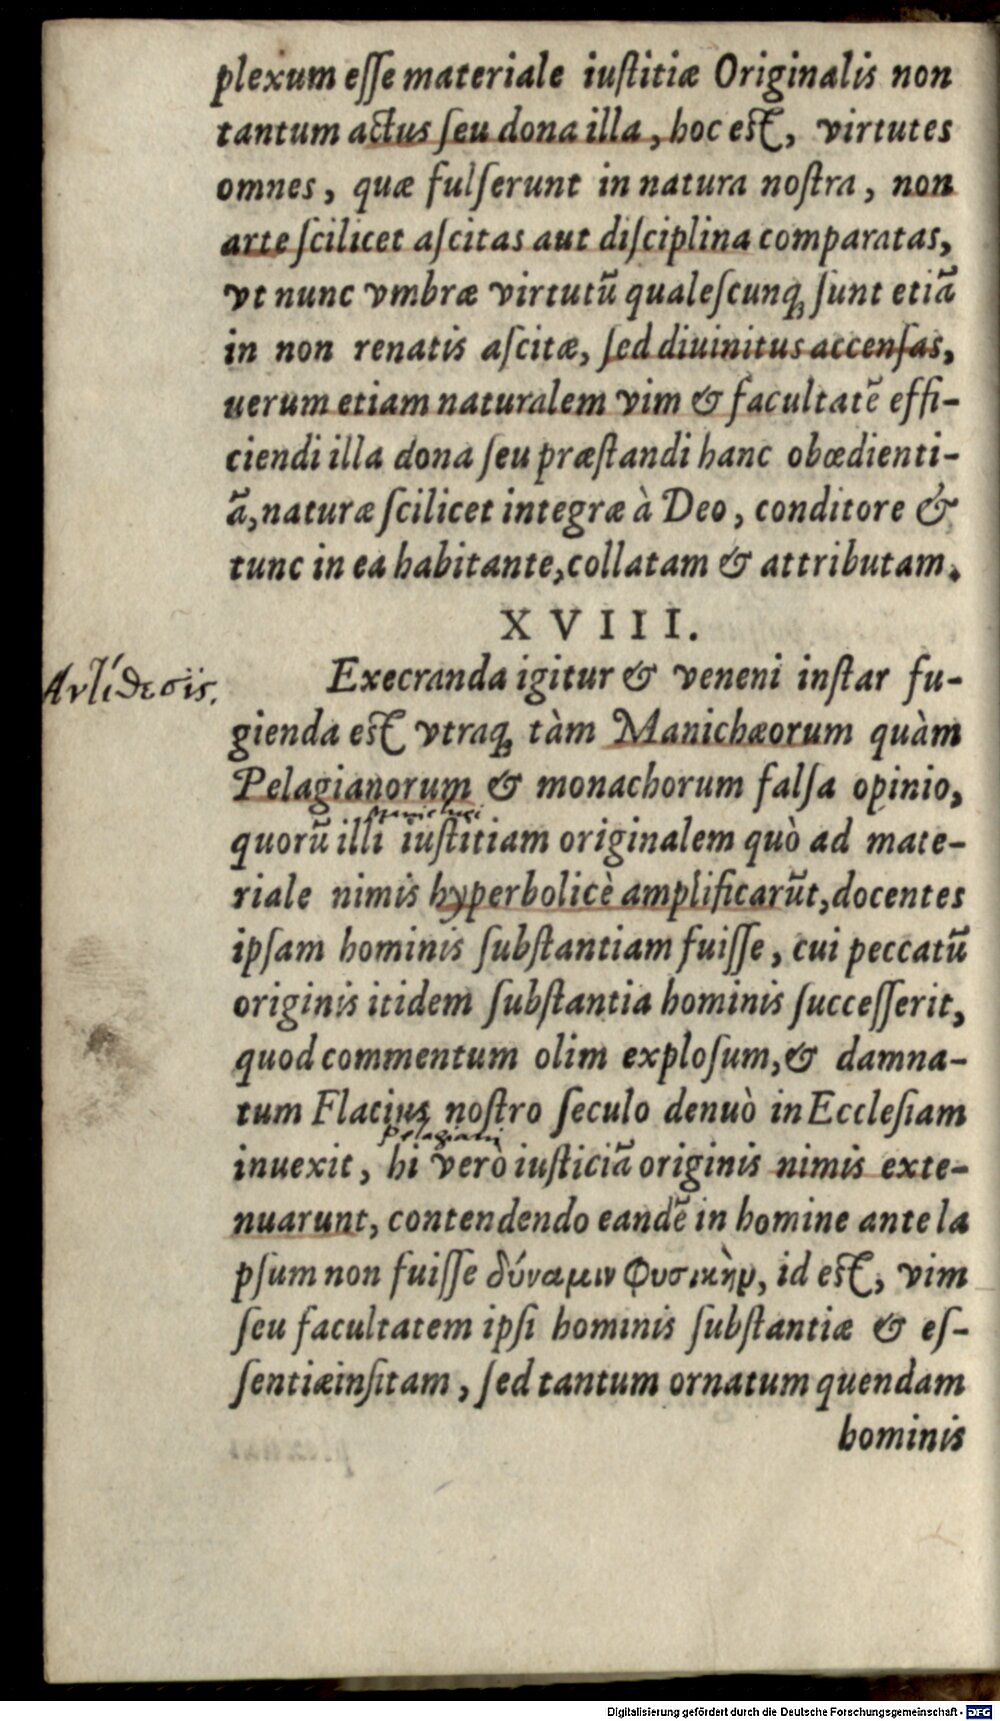 plexum esse materiale iustitiæ Originalis non
tantum actus seu dona illa, hoc est, virtutes
omnes, quæ fulserunt in natura nostra, non
arte scilicet ascitas aut disciplina comparatas,
vt nunc vmbræ virtutū qualescunq; sunt etiā
in non renatis ascitæ, sed diuinitus accensas,
uerum etiam naturalem vim & facultatē effi-
ciendi illa dona seu præstandi hanc obœdienti-
ā, naturæ scilicet integræ à Deo, conditore &
tunc in ea habitante, collatam & attributam.
XVIII.
Ἀντίθεσις.
Execranda igitur & veneni instar fu-
gienda est vtraq; tàm Manichæorum quàm
Pelagianorum & monachorum falsa opinio,
Manichaei
quorū illi iustitiam originalem quò ad mate-
riale nimis hyperbolicè amplificarūt, docentes
ipsam hominis substantiam fuisse, cui peccatū
originis itidem substantia hominis successerit,
quod commentum olim explosum, & damna-
tum Flacius nostro seculo denuò in Ecclesiam
Pelagiani
inuexit, hi verò iusticiā originis nimis exte-
nuarunt, contendendo eandē in homine ante la
psum non fuisse δύναμιν Φυσικὴν, id est, vim
seu facultatem ipsi hominis substantiæ & es-
sentiæ insitam, sed tantum ornatum quendam
hominis
Digitalisierung gefördert durch die Deutsche Forschungsgemeinschaft - DFG